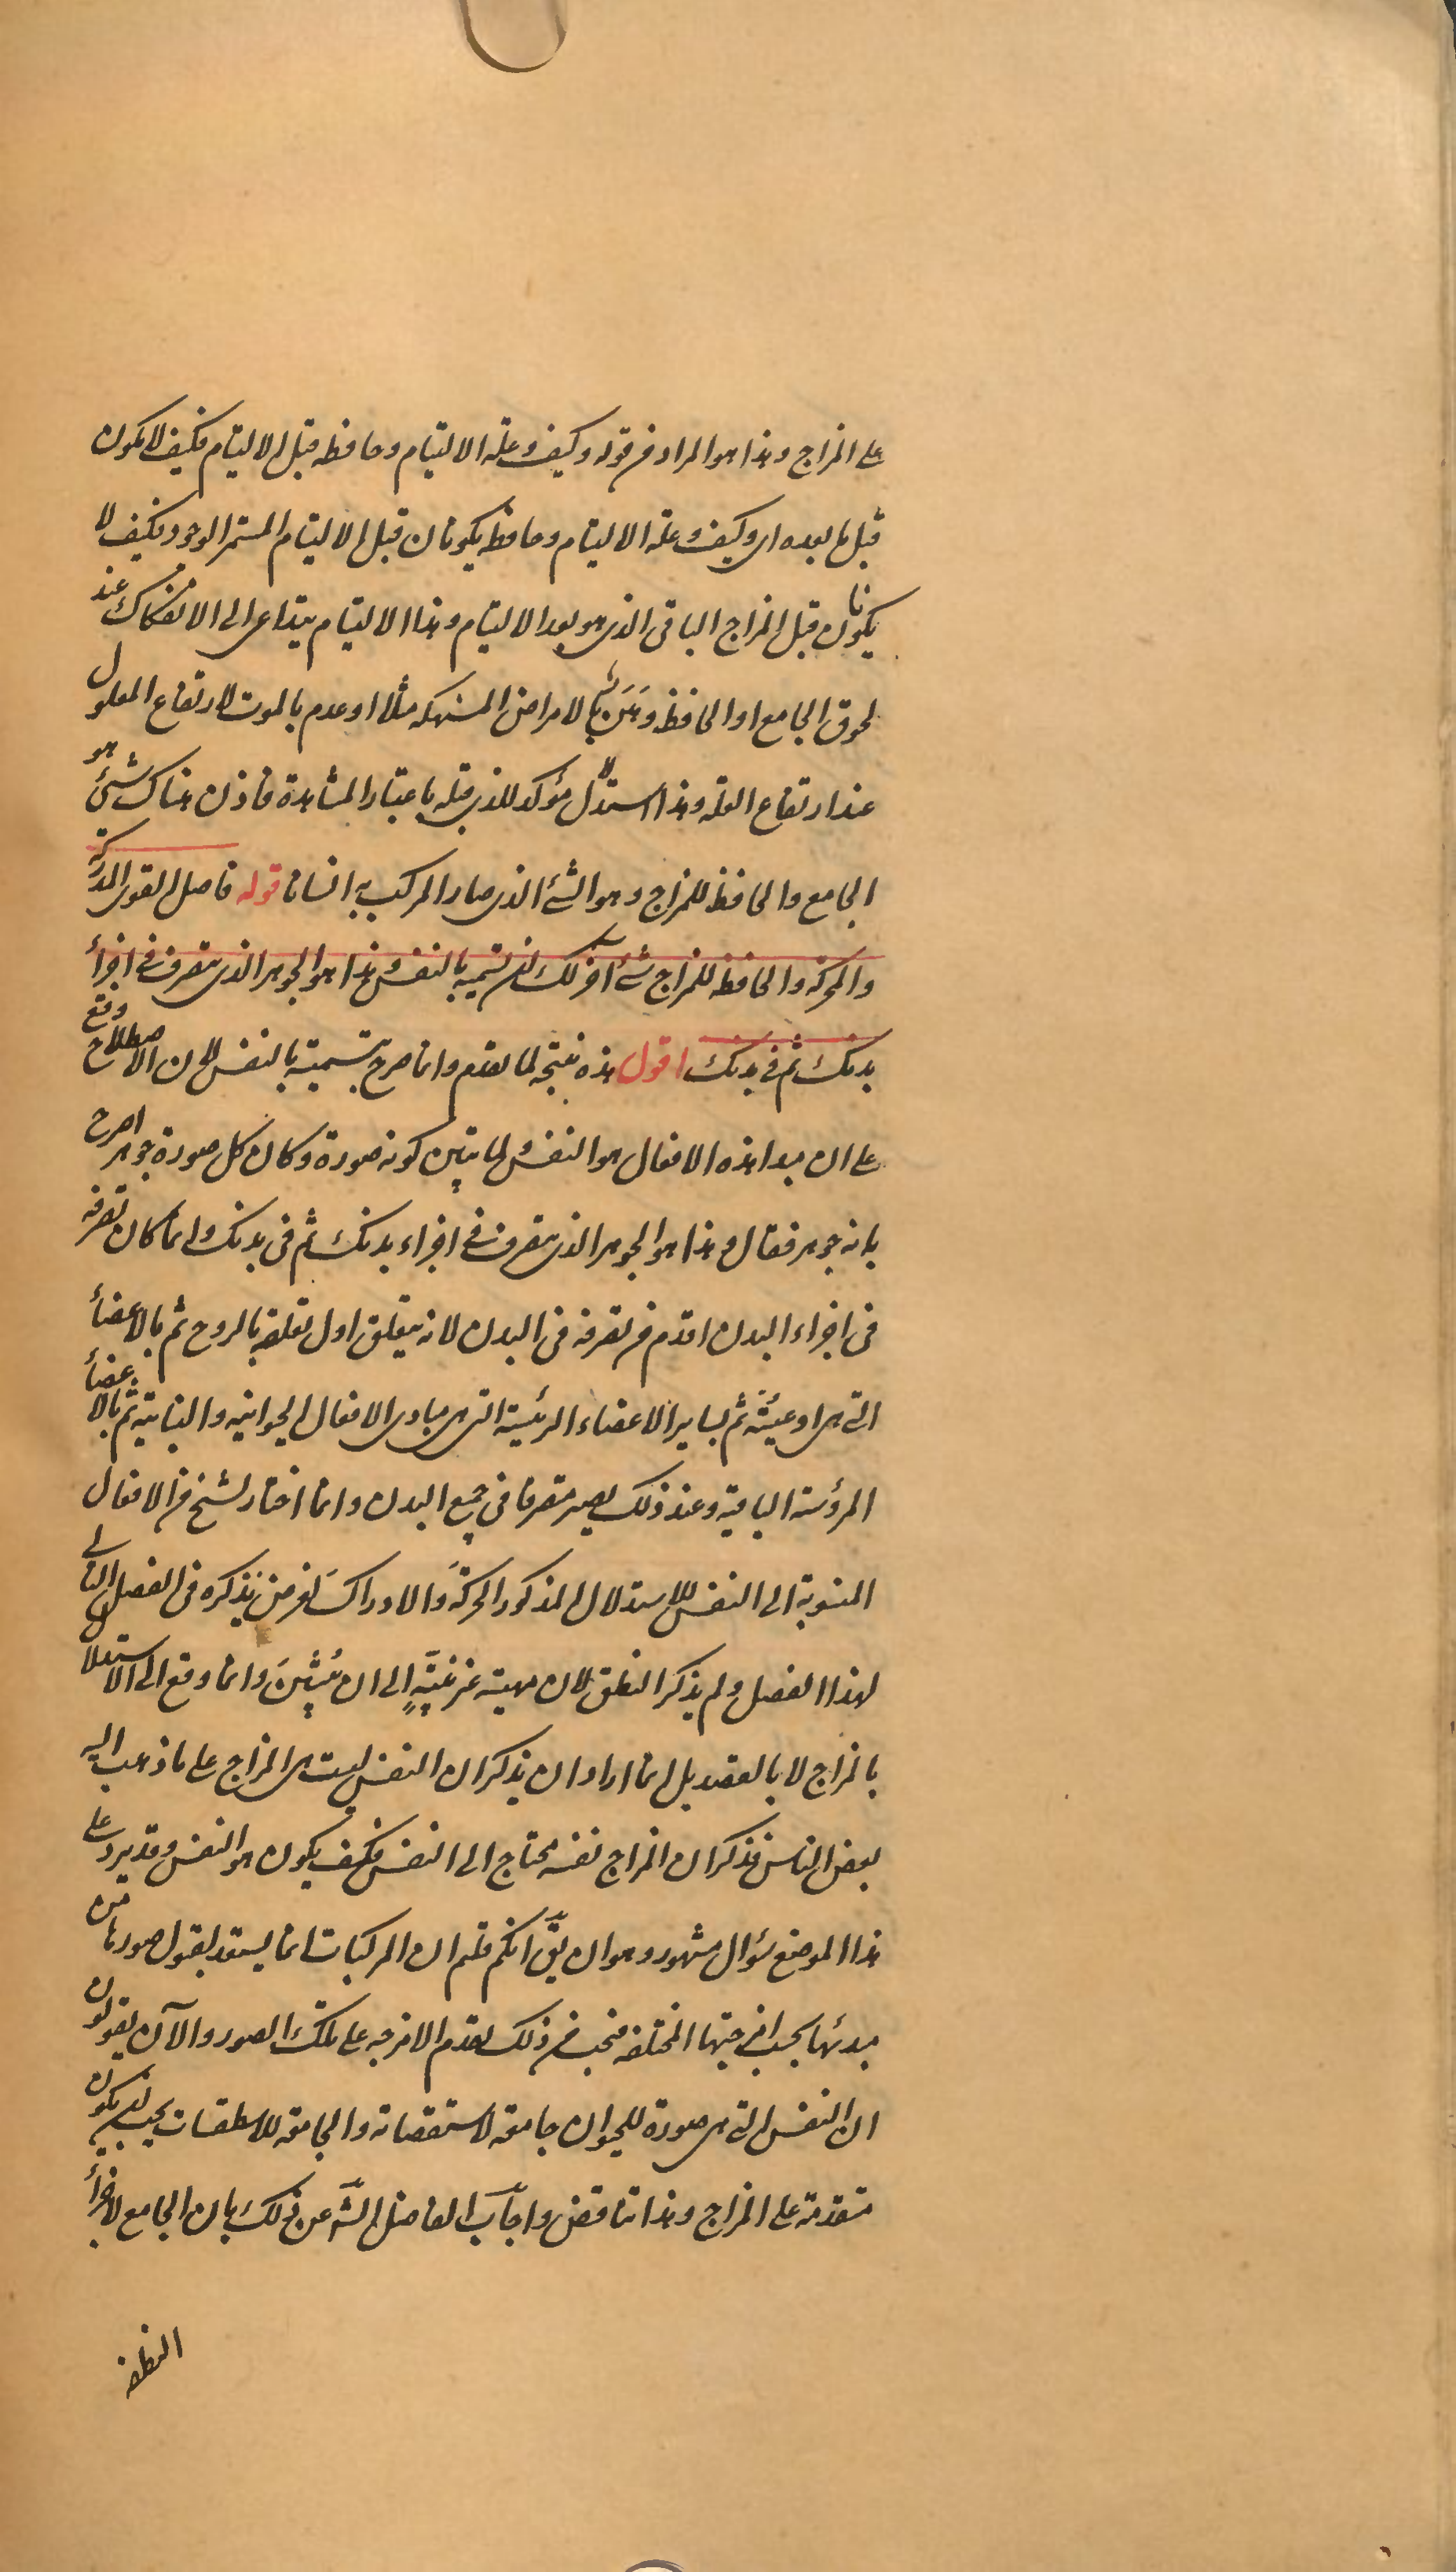 على المزاج وهذا هو المراد من قوله وكيف وعلة الالتيام وحافظه قبل الالتيام فكيف لا يكون
قبل ما بعده اى وكيف وعلة الالتيام وحافظه يكونان قبل الالتيام المستمر الوجود فكيف لا
يكونان قبل المزاج الباقى الذى هو بعد الالتيام وهذا الالتيام يتداعى الى الانفكاك عند
لحوق الجامع او الحافظ وَهَنٌ بالامراض المنهكه مثلا او عدم بالموت لارتفاع المعلول
عند ارتفاع العلة وهذا استدلال مؤكد للذى قبله باعتبار المشاهدة فاذن هناك شئ هو
الجامع والحافظ للمزاج وهو الشئ الذى صار المركب به انسانا قوله فاصل القوى المدركة
والمحركة والحافظه للمزاج شئ آخر لك ان تسميه بالنفس وهذا هو الجوهر الذى يتصرف فى اجزاء
بدنك ثم فى بدنك اقول هذه نتيجه لما تقدم وانما صرح بتسميته بالنفس لان الاصطلاح وقع
على ان مبدا هذه الافعال هو النفس ولما تبين كونه صورة وكان كل صورة جوهر اصرح
بانه جوهر فقال وهذا هو الجوهر الذى يتصرف فى اجزاء بدنك ثم فى بدنك وانما كان تصرفه
فى اجزاء البدن اقدم من تصرفه فى البدن لانه يتعلق اول تعلقه بالروح ثم بالاعضاء
التى هى اوعيته ثم بساير الاعضاء الرئيسة التى هى مبادى الافعال الحيوانيه والنباتيه ثم بالاعضاء
المرؤسة الباقية وعند ذلك يصير متصرفا فى جميع البدن وانما اختار الشيخ من الافعال
المنسوبة الى النفس للاستدلال المذكور الحركةَ والادراكَ لغرض يذكره فى الفصل التالى
لهذا الفصل ولم يذكر النطق لان مهيته غير غنيّةٍ الى ان يتبيّن وانما وقع الى الاستدلال
بالمزاج لا بالقصد بل لما اراد ان يذكر ان النفس ليست هى المزاج على ما ذهب اليه
بعض الناس فذكر ان المزاج نفسه محتاج الى النفس فكيف يكون هو النفس وقد يرد على
هذا الموضع سؤال مشهور وهو ان يقّ انكم قلتم ان المركبات انما يستعد لقبول صورها من
مبدئها بحسب امزجتها المختلفه فيجب من ذلك تقدم الامزجه على تلك الصور والآن يقولون
ان النفس التى هى صورة للحيوان جامعة لاستقصاته والجامعة للاسطقسات يجب ان يكون
متقدمة على المزاج وهذا تناقض واجاب الفاضل الشّ عن ذلك بان الجامع لاجزاء
النطفه